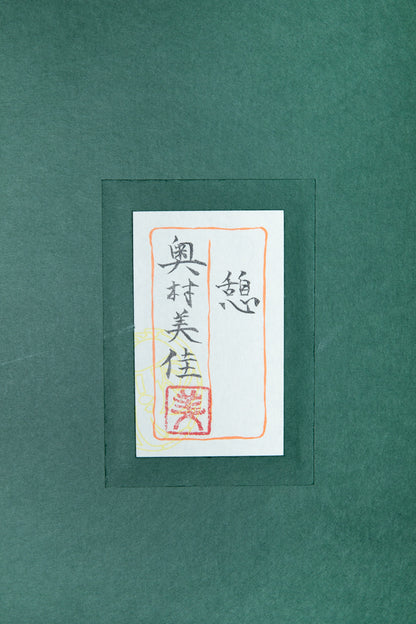 憩
奥村美佳
美